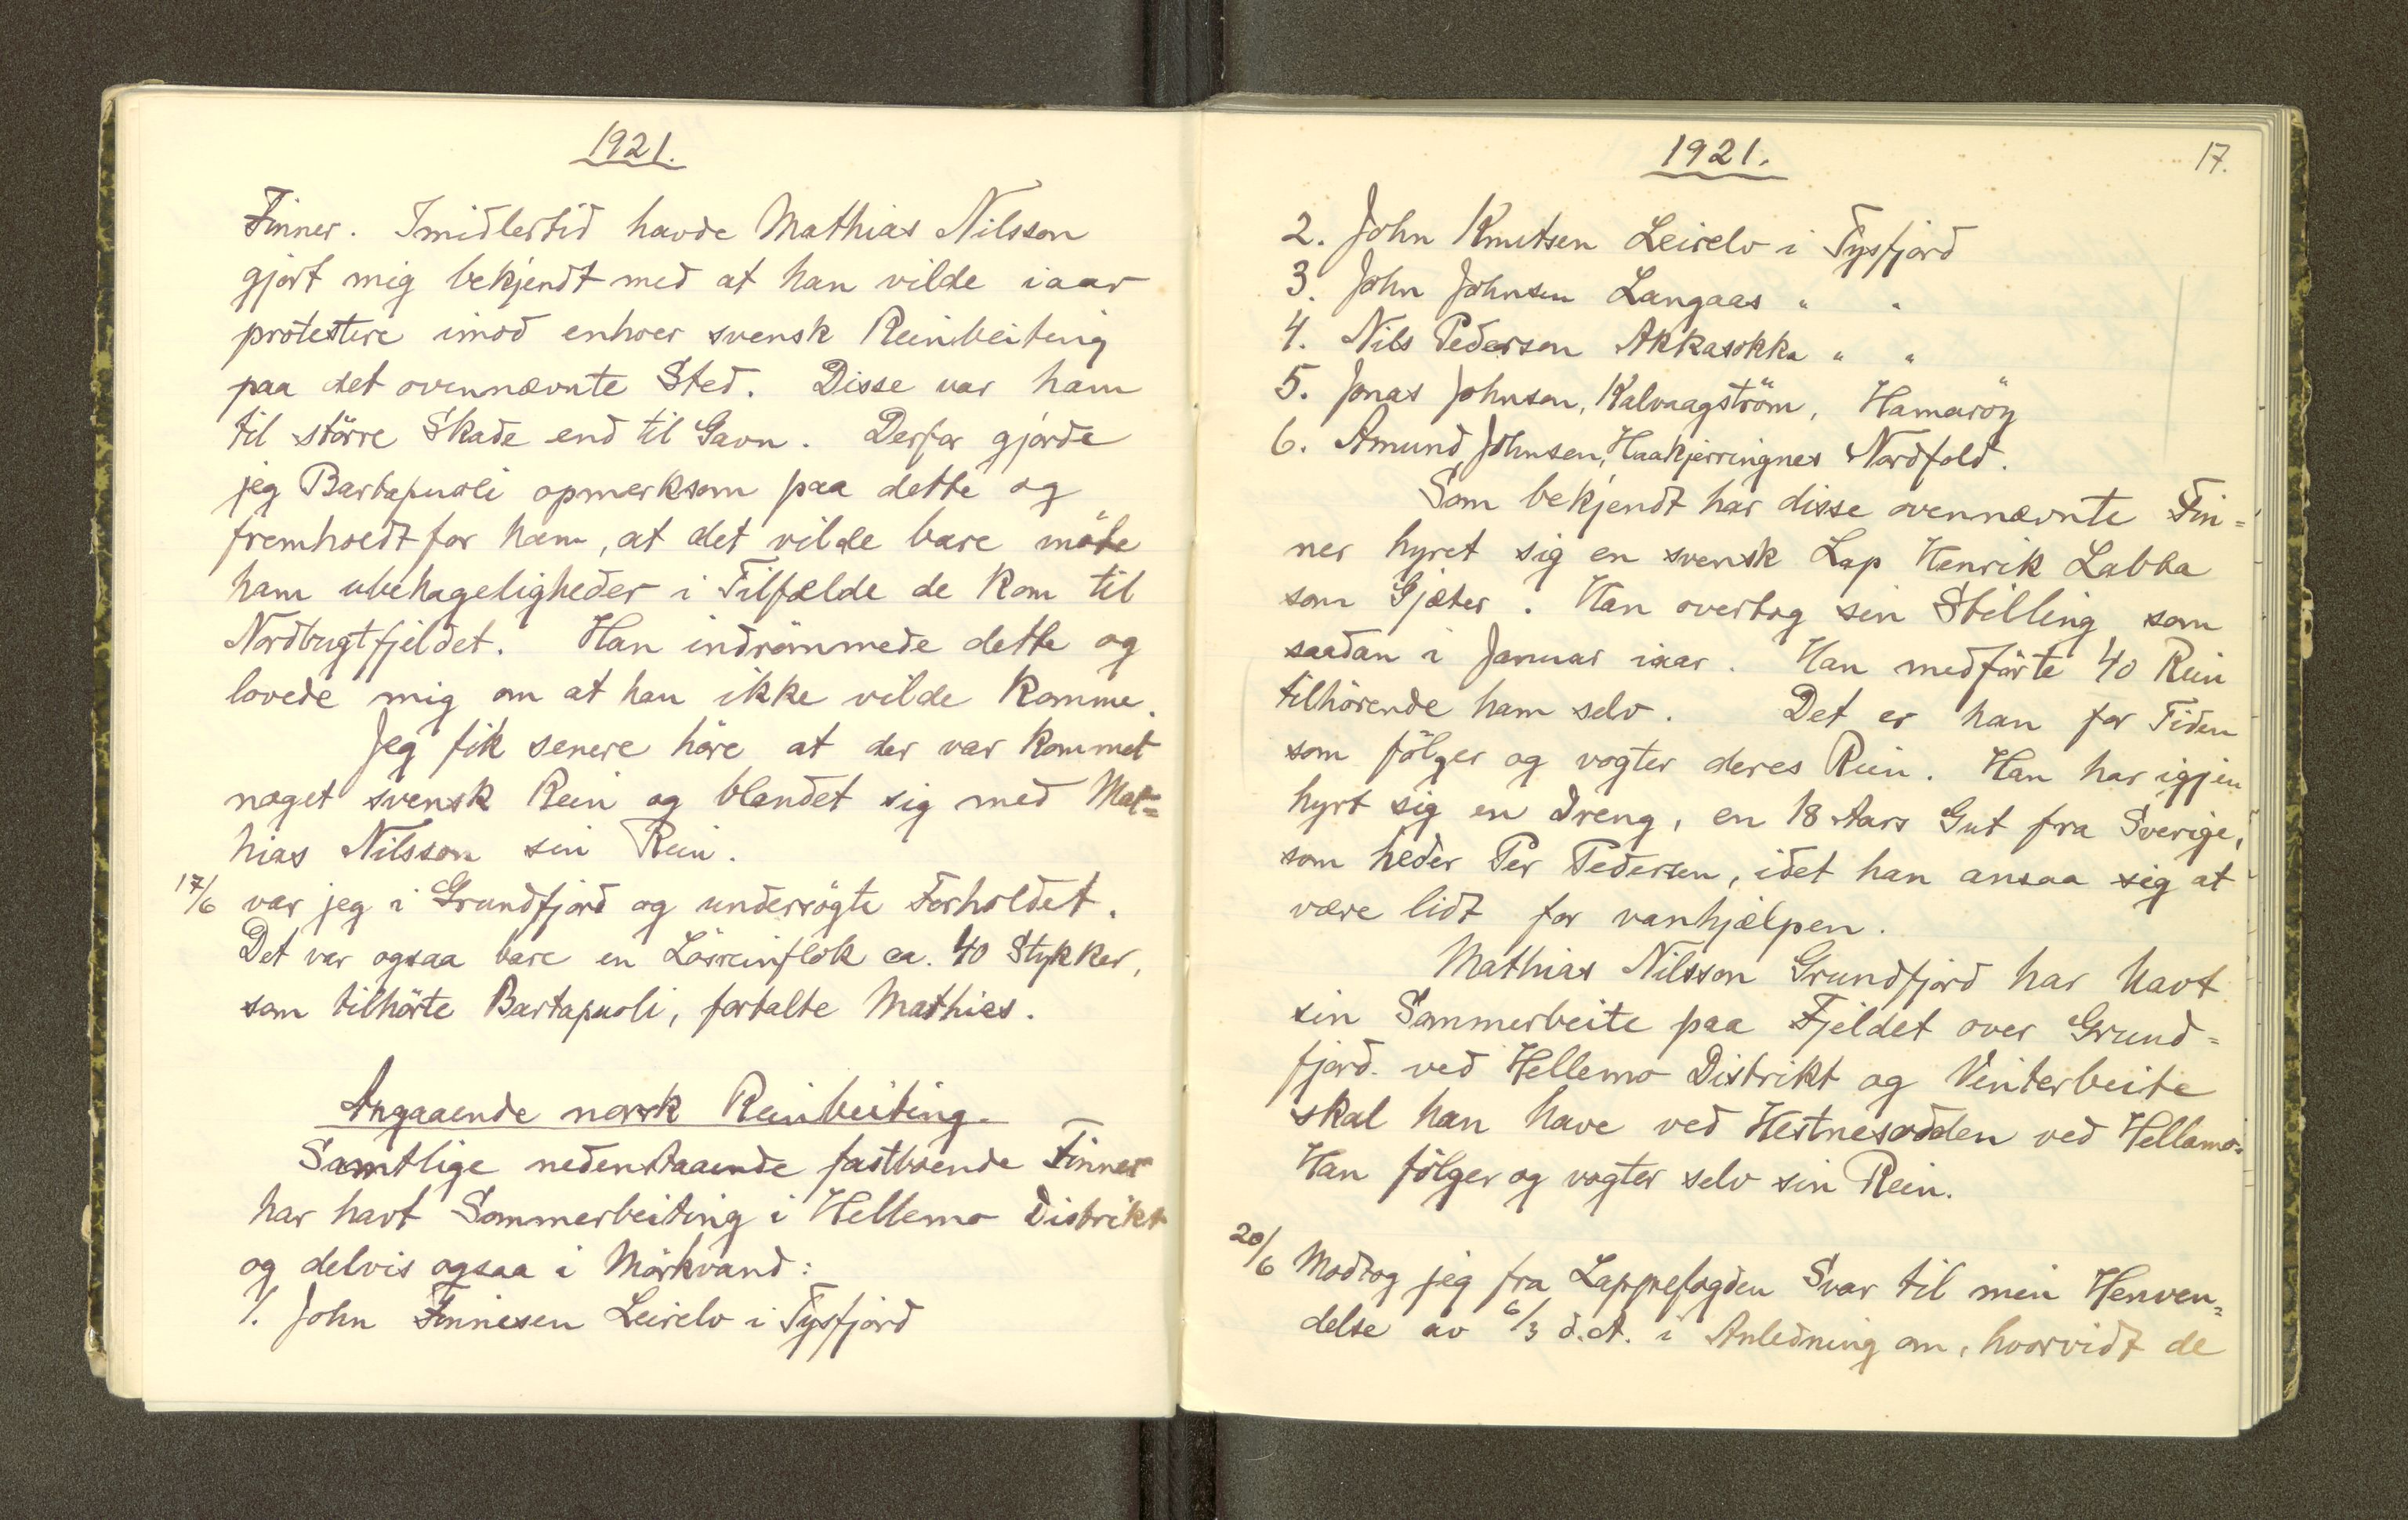 1921.
Finner. Imidlertid havde Mathias Nilsson
gjort mig bekjendt med at han vilde iaar
protestere imod enhver svensk Reinbeiting
paa det ovennævnte Sted. Disse var ham
til större Skade end til Gavn. Derfor gjorde
jeg Bartapuoli opmerksom paa dette og
fremholdt for ham, at det vilde bare möte
ham ubehageligheder i Tilfælde de kom til
Nordbugtfjeldet. Han indrömmede dette og
lovede mig om at han ikke vilde komme.
Jeg fik senere höre at der var kommet
noget svensk Rein og blandet sig med Mat=
hias Nilsson sin Rein.
17/6 var jeg i Grundfjord og undersögte Forholdet.
Det var ogsaa bare en Lösreinflok ca. 40 Stykker,
som tilhörte Bartapuoli, fortalte Mathias.
Angaaende norsk Reinbeiting.
Samtlige nedenstaaende fastboende Finner
har havt Sommerbeiting i Hellemo Distrikt
og delvis ogsaa i Mörkvand:
1. John Finnesen Leirelv i Tysfjord
1921.
17.
2. John Knutsen Leirelv i Tysfjord
3. John Johnsen Langaas " "
4. Nils Pedersen Akkasokka " "
5. Jonas Johnsen, Kalvaagström, Hamaröy
6. Amund Johnsen, Haakjerringnes Nordfold.
Som bekjendt har disse ovennævnte Fin=
ner hyret sig en svensk Lap Henrik Labba
som Gjæter. Han overtog sin Stilling som
saadan i Januar iaar. Han medförte 40 Rein
tilhörende ham selv. Det er han for Tiden
som fölger og vogter deres Rein. Han har igjen
hyrt sig en Dreng, en 18 Aars Gut fra Sverige,
som heder Per Pedersen, idet han ansaa sig at
være lidt for vanhjælpen.
Mathias Nilsson Grundfjord har havt
sin Sommerbeite paa Fjeldet over Grund=
fjord ved Hellemo Distrikt og Vinterbeite
skal han have ved Hestnesodden ved Hellamo.
Han fölger og vogter selv sin Rein.
20/6 Modtog jeg fra Lappefogden Svar til min Henven=
delse av 6/3 d.A. i Anledning om, hvorvidt de